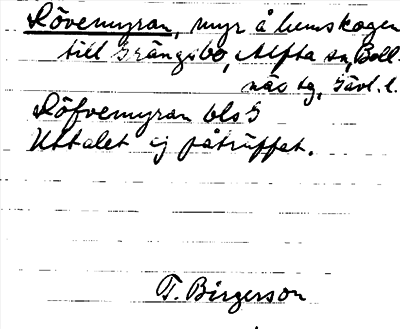 Rövemyran, myr å hemskogen
till Grängsbo, Alfta sn, Boll-
näs tg, Gävl. l.
Röfvemyran bls G
Uttalet ej påträffat.
T. Birgerson